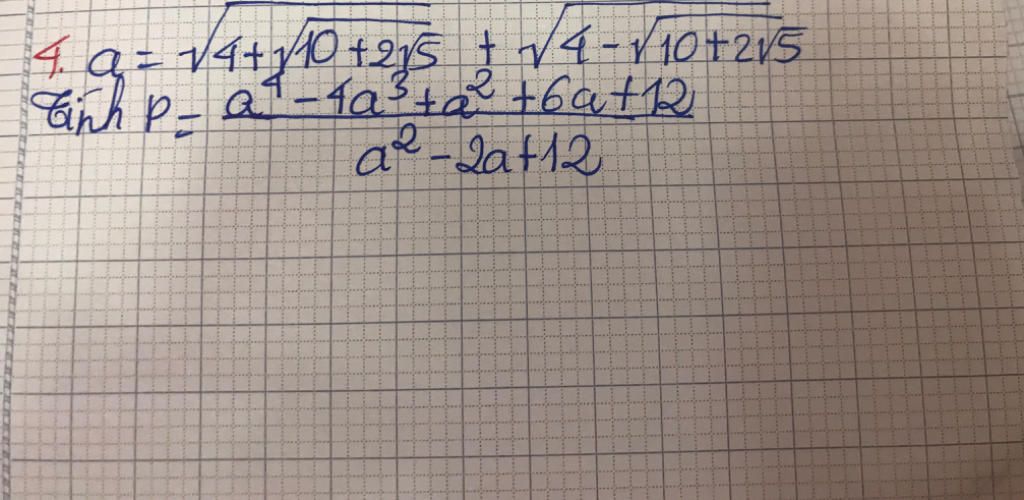 4. a = √(4+√(10+2√5)) + √(4-√(10+2√5))
Tính P = (a⁴ - 4a³ + a² + 6a + 12)/(a² - 2a + 12)